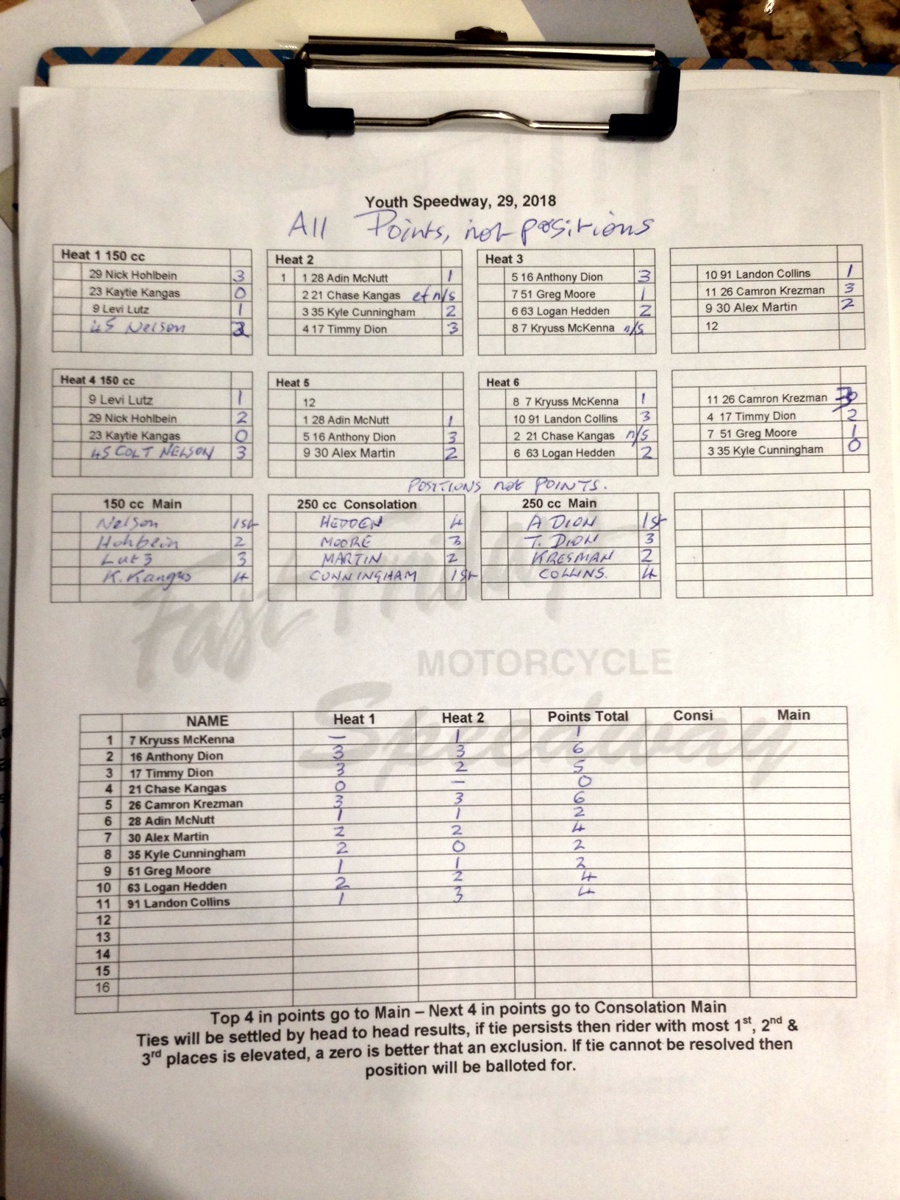 Youth Speedway, 29, 2018
All Points, not positions
Heat 1 150 cc
29 Nick Hohlbein 3
23 Kaytie Kangas 0
9 Levi Lutz 1
45 Nelson
Heat 2
1 1 28 Adin McNutt 1
2 21 Chase Kangas n/s
3 35 Kyle Cunningham 2
4 17 Timmy Dion 3
Heat 3
5 16 Anthony Dion 3
7 51 Greg Moore 1
6 63 Logan Hedden 2
8 7 Kryuss McKenna n/s
10 91 Landon Collins 1
11 26 Camron Krezman 3
9 30 Alex Martin 2
12
Heat 4 150 cc
9 Levi Lutz 1
29 Nick Hohlbein 2
23 Kaytie Kangas 0
45 COLT NELSON 3
Heat 5
12
1 28 Adin McNutt 1
5 16 Anthony Dion 3
9 30 Alex Martin 2
Heat 6
8 7 Kryuss McKenna 1
10 91 Landon Collins 3
2 21 Chase Kangas n/s
6 63 Logan Hedden 2
11 26 Camron Krezman 3
4 17 Timmy Dion 2
7 51 Greg Moore 1
3 35 Kyle Cunningham 0
POSITIONS not POINTS.
150 cc Main
Nelson 1st
Hohbein 2
Lutz 3
K. Kangas 4
250 cc Consolation
HEDDEN 4
MOORE 3
MARTIN 2
CUNNINGHAM 1st
250 cc Main
A DION 1st
T. DION 3
KRESMAN 2
COLLINS. 4
Fast Friday
MOTORCYCLE
Speedway
NAME Heat 1 Heat 2 Points Total Consi Main
1 7 Kryuss McKenna — 1 1
2 16 Anthony Dion 3 3 6
3 17 Timmy Dion 3 2 5
4 21 Chase Kangas 0 — 0
5 26 Camron Krezman 3 3 6
6 28 Adin McNutt 1 1 2
7 30 Alex Martin 2 2 4
8 35 Kyle Cunningham 2 0 2
9 51 Greg Moore 1 1 2
10 63 Logan Hedden 2 2 4
11 91 Landon Collins 1 3 4
12
13
14
15
16
Top 4 in points go to Main – Next 4 in points go to Consolation Main
Ties will be settled by head to head results, if tie persists then rider with most 1st, 2nd &
3rd places is elevated, a zero is better that an exclusion. If tie cannot be resolved then
position will be balloted for.